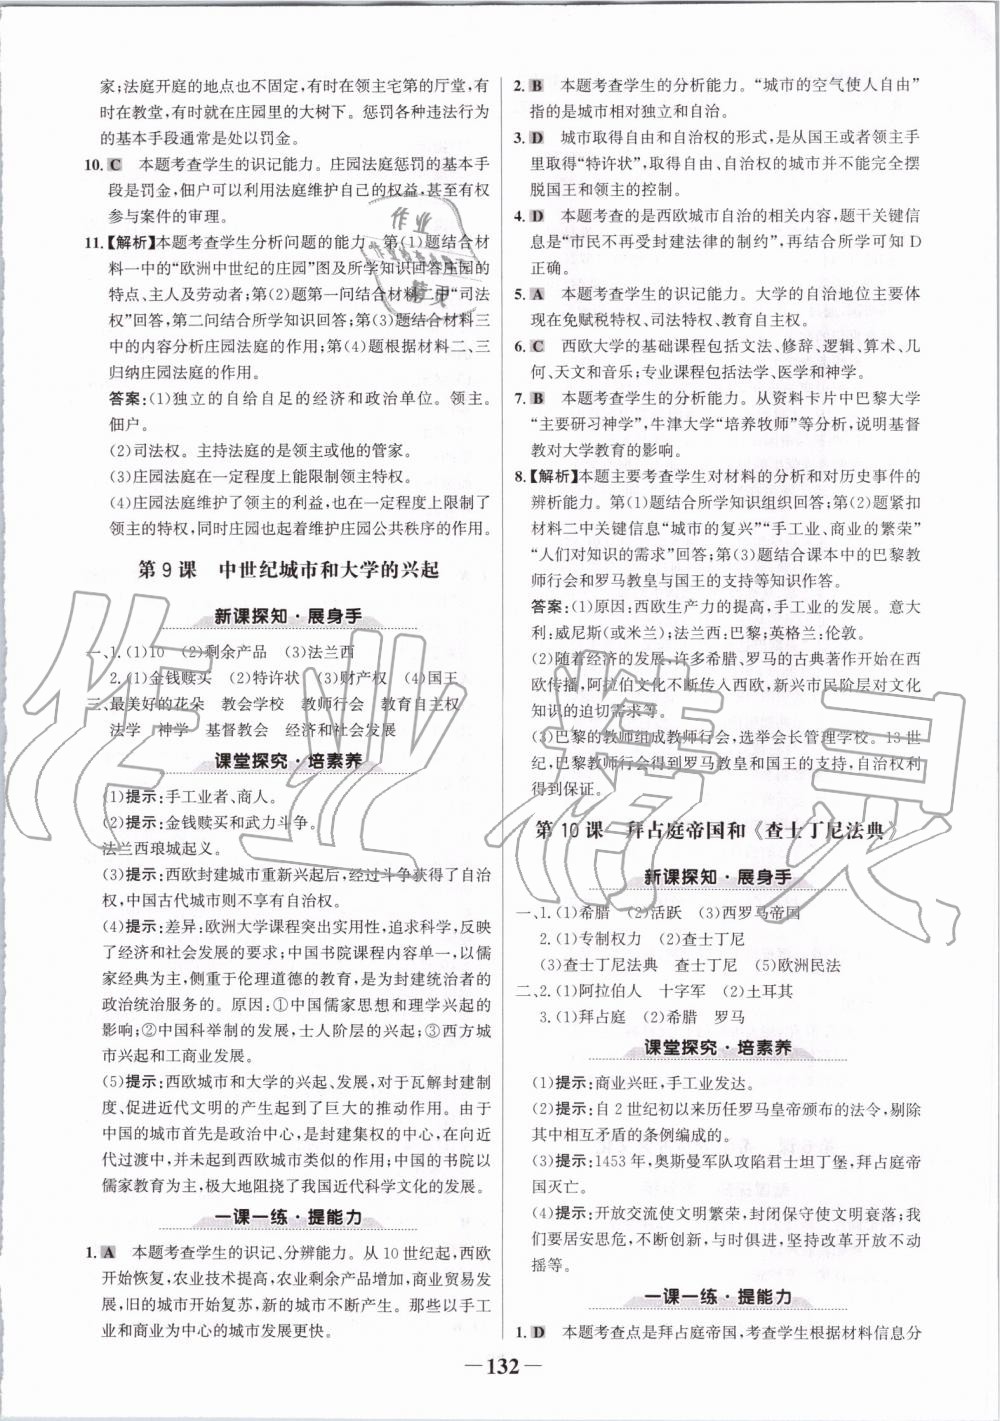 家;法庭开庭的地点也不固定,有时在领主宅第的厅堂,有
时在教堂,有时就在庄园里的大树下。惩罚各种违法行为
的基本手段通常是处以罚金。
10. C 本题考查学生的识记能力。庄园法庭惩罚的基本手
段是罚金,佃户可以利用法庭维护自己的权益,甚至有权
参与案件的审理。
11.【解析】本题考查学生分析问题的能力。第(1)题结合材
料一中的“欧洲中世纪的庄园”图及所学知识回答庄园的
特点、主人及劳动者;第(2)题第一问结合材料二中“司法
权”回答,第二问结合所学知识回答;第(3)题结合材料三
中的内容分析庄园法庭的作用;第(4)题根据材料二、三
归纳庄园法庭的作用。
答案:(1)独立的自给自足的经济和政治单位。领主。
佃户。
(2)司法权。主持法庭的是领主或他的管家。
(3)庄园法庭在一定程度上能限制领主特权。
(4)庄园法庭维护了领主的利益,也在一定程度上限制了
领主的特权,同时庄园也起着维护庄园公共秩序的作用。
第 9 课 中世纪城市和大学的兴起
新课探知·展身手
一、1.(1)10 (2)剩余产品 (3)法兰西
2.(1)金钱赎买 (2)特许状 (3)财产权 (4)国王
二、最美好的花朵 教会学校 教师行会 教育自主权
法学 神学 基督教会 经济和社会发展
课堂探究·培素养
(1)提示:手工业者、商人。
(2)提示:金钱赎买和武力斗争。
法兰西琅城起义。
(3)提示:西欧封建城市重新兴起后,经过斗争获得了自治
权,中国古代城市则不享有自治权。
(4)提示:差异:欧洲大学课程突出实用性,追求科学,反映
了经济和社会发展的要求;中国书院课程内容单一,以儒
家经典为主,侧重于伦理道德的教育,是为封建统治者的
政治统治服务的。原因:①中国儒家思想和理学兴起的
影响;②中国科举制的发展,士人阶层的兴起;③西方城
市兴起和工商业发展。
(5)提示:西欧城市和大学的兴起、发展,对于瓦解封建制
度、促进近代文明的产生起到了巨大的推动作用。由于
中国的城市首先是政治中心,是封建集权的中心,在向近
代过渡中,并未起到西欧城市类似的作用;中国的书院以
儒家教育为主,极大地阻挠了我国近代科学文化的发展。
一课一练·提能力
1. A 本题考查学生的识记、分辨能力。从 10 世纪起,西欧
开始恢复,农业技术提高,农业剩余产品增加,商业贸易发
展,旧的城市开始复苏,新的城市不断产生。那些以手工
业和商业为中心的城市发展更快。
2. B 本题考查学生的分析能力。“城市的空气使人自由”
指的是城市相对独立和自治。
3. D 城市取得自由和自治权的形式,是从国王或者领主手
里取得“特许状”,取得自由、自治权的城市并不能完全摆
脱国王和领主的控制。
4. D 本题考查的是西欧城市自治的相关内容,题干关键信
息是“市民不再受封建法律的制约”,再结合所学可知 D
正确。
5. A 本题考查学生的识记能力。大学的自治地位主要体
现在免赋税特权、司法特权、教育自主权。
6. C 西欧大学的基础课程包括文法、修辞、逻辑、算术、几
何、天文和音乐;专业课程包括法学、医学和神学。
7. B 本题考查学生的分析能力。从资料卡片中巴黎大学
“主要研习神学”,牛津大学“培养牧师”等分析,说明基督
教对大学教育的影响。
8.【解析】本题主要考查学生对材料的分析和对历史事件的
辨析能力。第(1)题结合所学知识组织回答;第(2)题紧扣
材料二中关键信息“城市的复兴”“手工业、商业的繁荣”
“人们对知识的需求”回答;第(3)题结合课本中的巴黎教
师行会和罗马教皇与国王的支持等知识作答。
答案:(1)原因:西欧生产力的提高,手工业的发展。意大
利:威尼斯(或米兰);法兰西:巴黎;英格兰:伦敦。
(2)随着经济的发展,许多希腊、罗马的古典著作开始在西
欧传播,阿拉伯文化不断传入西欧,新兴市民阶层对文化
知识的迫切需求等。
(3)巴黎的教师组成教师行会,选举会长管理学校。13 世
纪,巴黎教师行会得到罗马教皇和国王的支持,自治权利
得到保证。
第 10 课 拜占庭帝国和《查士丁尼法典》
新课探知·展身手
一、1.(1)希腊 (2)活跃 (3)西罗马帝国
2.(1)专制权力 (2)查士丁尼
(3)查士丁尼法典 查士丁尼 (5)欧洲民法
二、2.(1)阿拉伯人 十字军 (2)土耳其
3.(1)拜占庭 (2)希腊 罗马
课堂探究·培素养
(1)提示:商业兴旺,手工业发达。
(2)提示:自 2 世纪初以来历任罗马皇帝颁布的法令,剔除
其中相互矛盾的条例编成的。
(3)提示:1453 年,奥斯曼军队攻陷君士坦丁堡,拜占庭帝
国灭亡。
(4)提示:开放交流使文明繁荣,封闭保守使文明衰落;我
们要居安思危,不断创新,与时俱进,坚持改革开放不动
摇等。
一课一练·提能力
1. D 本题考查点是拜占庭帝国,考查学生根据材料信息分
— 132 —
作业精灵